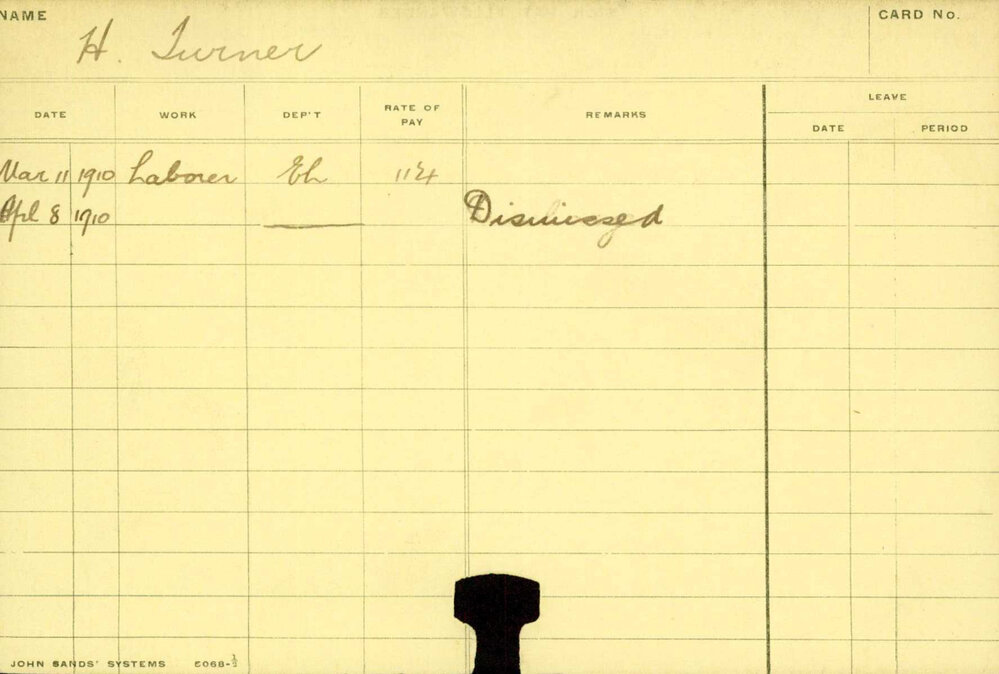 NAME
H. Turner
CARD No.
DATE WORK DEP'T RATE OF PAY REMARKS LEAVE
DATE PERIOD
Mar 11 1910 Laborer Eh 11¼
Apl 8 1910 Dismissed
JOHN SANDS' SYSTEMS 5068-½